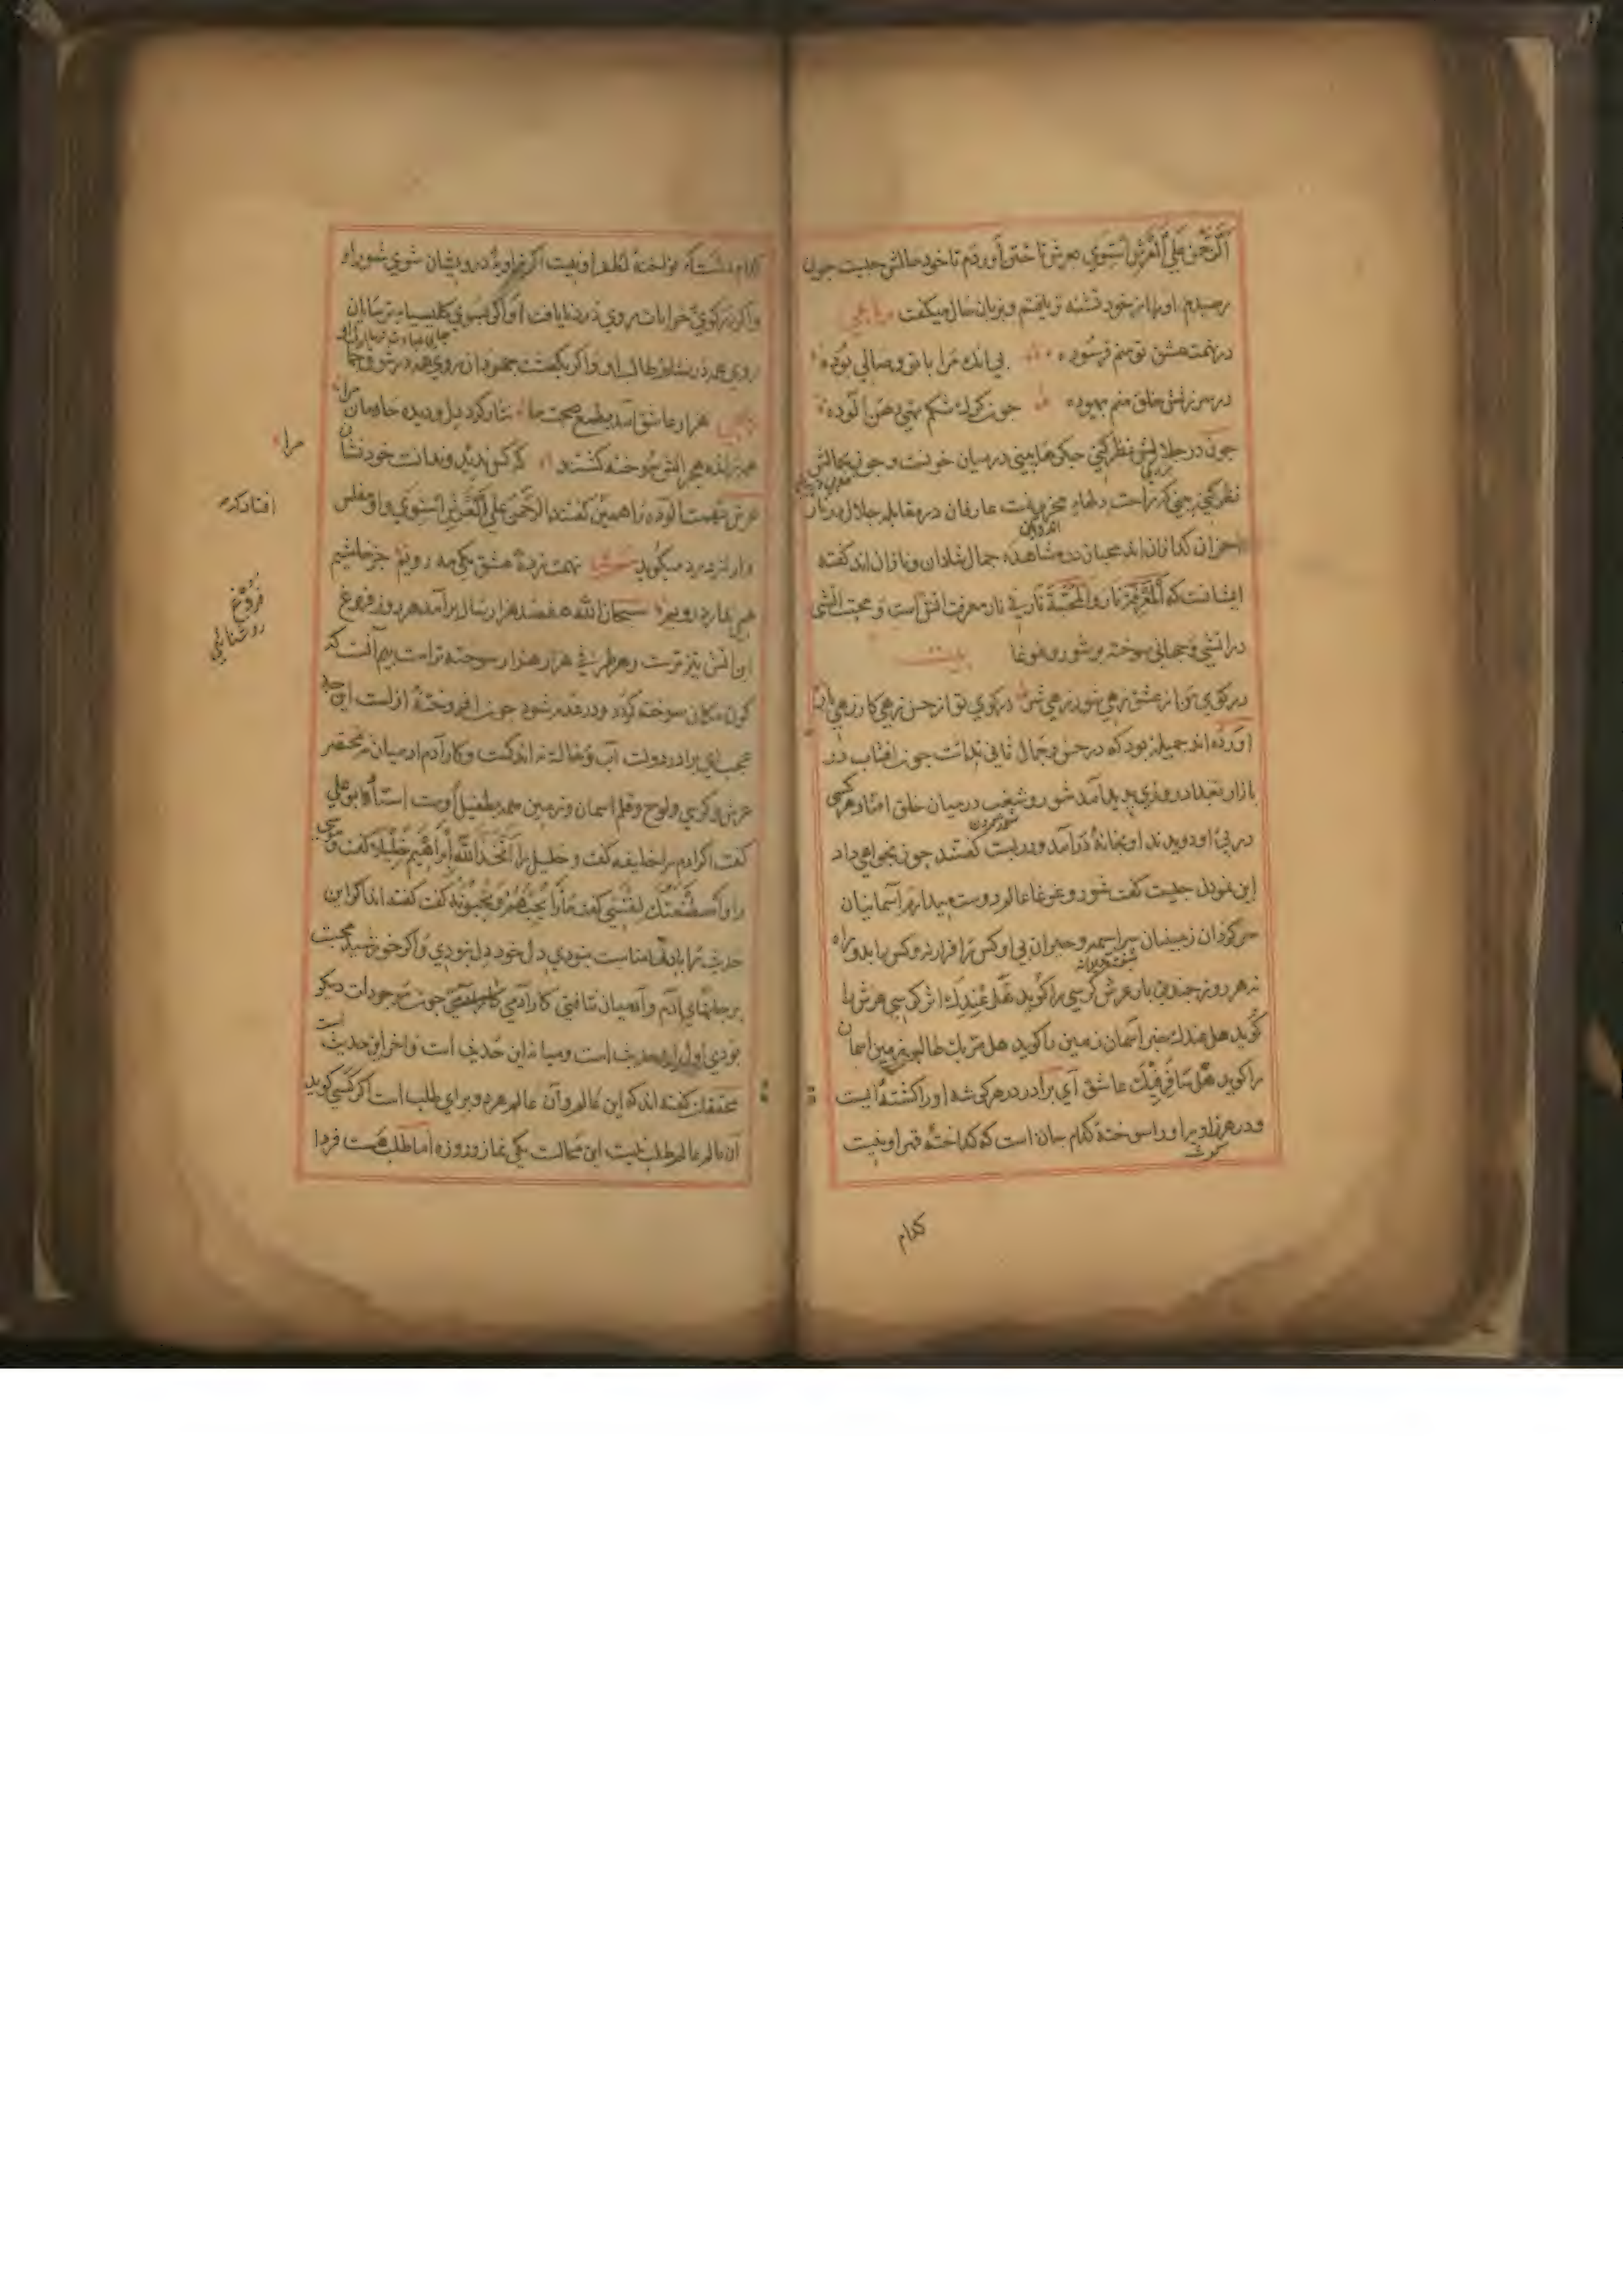 الرحمن علی العرش استوی بعرش تاختن آوردم تا خود حالش چیست چون
رسیدم او را از خود تشنه تر یافتم و بزبان حال میکفت رباعی
در تهمت عشق تو منم فرسوده بی آنك مرا با تو وصالی بوده
در سرزنش خلق منم بیهوده چون کرك شکم تهی دهن آلوده
چون در جلالش نظر کنی جکرها بینی در میان خونست و چون بجمالش
نظر کنی بینی که راحت دلهاء محزونست عارفان در مقابله جلال در نار
احزان کدازان اند محبان در مشاهده جمال شادان و نازان اند کفته
ایشانست که المعرفة نار والمحبة نار فی نار معرفت اتشی است و محبت اتشی
در اتشی و جهانی سوخته پر شور و غوغا بیت
در کوی تو از عشق زهی شور زهی شر در کوی تو از حسن زهی کار زهی بار
آورده اند جمیلهٔ بود که در حسن و جمال ثانی نداشت چون افتاب در
بازار بغداد روزی پدید آمد شور و شغب در میان خلق افتاد هرکسی
در پی او دویدند او بخانه در آمد و در ببست کفتند چون نمی خواهی داد
این نمودن چیست کفت شور و غوغا عالم دوست میدارم آسمانیان
سرکردان زمینیان سراسیمه و حیران نی او کس را قرار نه و کس را بدو راه
نه هر روز چندین بار عرش کرسی را کوید هل عندك اثر کرسی عرش را
کوید هل عندك خبر آسمان زمین را کوید هل مر بك طالب زمین اسمان
را کوید هل سافر فیك عاشق ای برادر در هر کوشه او را کشته ایست
و در هر زاویه او را سوخته کدام جان است که کداخته قهر او نیست
کدام
کدام دلست که نواخته لطف او نیست اکر در زاویهٔ درویشان شوی شور او
و اکر در کوی خرابات روی درد نایافت او و اکر بسوی کلیسیاء ترسایان
روی همه در نشاط طلب او و اکر بکنشت جهودان روی همه در شوق جمال
هزار عاشق آمد بطمع صحبت ما نثار کرد دل و دیده خان و مان
همه بآتش هجرانش سوخته کشتند که کس ندید و ندانست خود نشان
مرا
عرش تهمت آلوده را همین کفتند الرحمن علی العرش استوی و او مفلس
افتادکر
وار از درد میکوید تهمت زدهٔ عشق یکی مه رویم جز خاشیه
فروغ
روشنایی
می ندارد رویم سبحان الله هفتصد هزار سال برآمد هر روز فروغ
این آتش تیزتر است و هر طرفی هزار هزار سوخته تر است بیم آنست که
کون و مکان سوخته کردد و در عدم شود چون افروخته ازلست این چه
عجب ای برادر دولت آب و خاك نه اندکست و کار آدم و آدمیان نه مختصر
عرش و کرسی و لوح و قلم اسمان و زمین همه بطفیل اوست استاد ابو علی
کفت اکر آدم را خلیفه کفت و خلیل را اتخذ الله ابراهیم خلیلا کفت و موسی
را واصطنعتك لنفسی کفت ما را یحبهم و یحبونه کفت کفته اند اکر این
حدیث را با دلها مناسبت نبودی دل خود دل نبودی و اکر خورشید محبت
بر جانهای آدم و آدمیان نتافتی کار آدمی چون موجودات دیکر
بودی اول این حدیث است و میانه این حدیث است و اخر این حدیث است
محققان کفته اند که این عالم و آن عالم هر دو برای طلب است اکر کسی کوید
آن عالم عالم طلب نیست این محالست یکی نماز و روزه اما طلب هست فردا